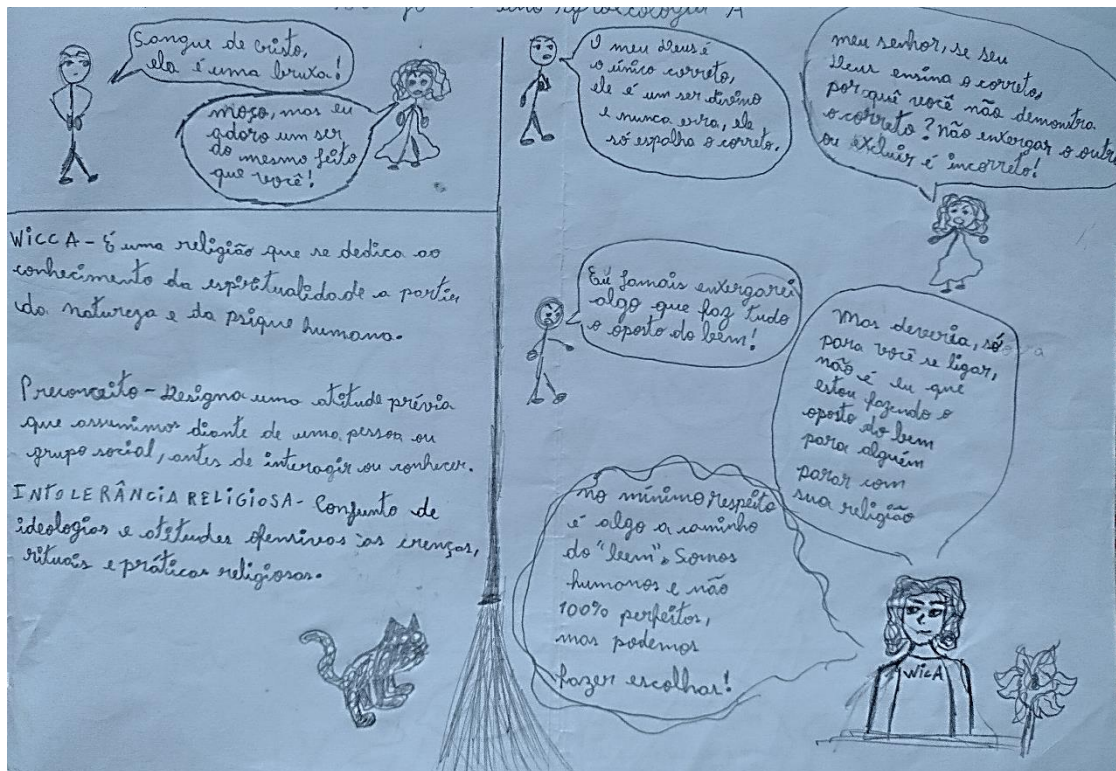 Agroecologia A
Sangue de cristo,
ela é uma bruxa!
moço, mas eu
adoro um ser
do mesmo jeito
que você!
WICCA - É uma religião que se dedica ao
conhecimento da espiritualidade a partir
da natureza e da psique humana.
Preconceito - Designa uma atitude prévia
que assumimos diante de uma pessoa ou
grupo social, antes de interagir ou conhecer.
INTOLERÂNCIA RELIGIOSA - Conjunto de
ideologias e atitudes ofensivas às crenças,
rituais e práticas religiosas.
O meu Deus é
o único correto,
ele é um ser divino
e nunca erra, ele
só espalha o correto.
meu senhor, se seu
Deus ensina o correto,
por quê você não demonstra
o correto? Não enxergar o outro
ou excluir é incorreto!
Eu jamais enxergarei
algo que faz tudo
o oposto do bem!
Mas deveria, só
para você se ligar,
não é eu que
estou fazendo o
oposto do bem
para alguém
parar com
sua religião
no mínimo, respeito
é algo a caminho
do "bem". Somos
humanos e não
100% perfeitos,
mas podemos
fazer escolhas!
WICA